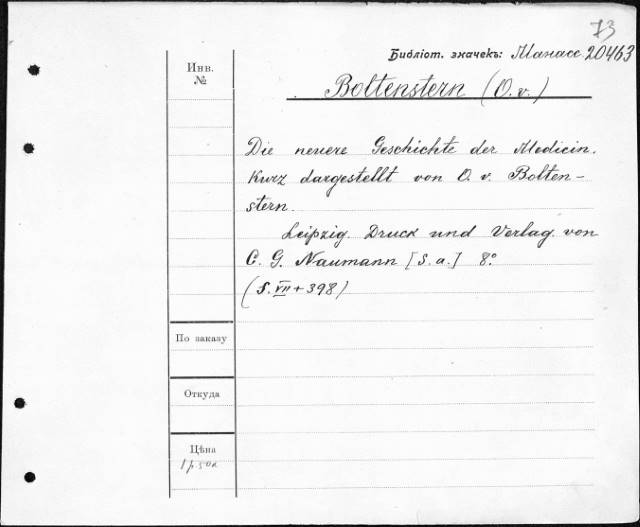 73
Библіот. значекъ: Манасс. 20463
Инв.
№
Boltenstern (O. v.)
Die neuere Geschichte der Medicin.
Kurz dargestellt von O. v. Bolten-
stern.
Leipzig. Druck und Verlag. von
C. G. Naumann [S. a.] 8°.
(S. VII + 398)
По заказу
Откуда
Цѣна
1 р. 50 к